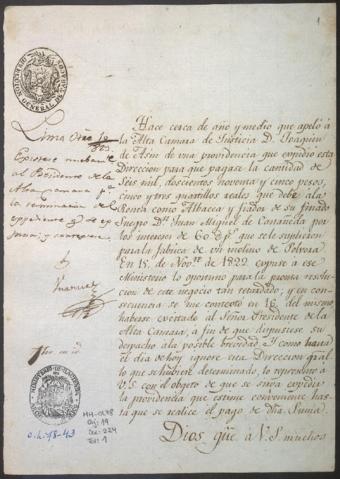 1
Lima Enero 18
al Presidente de la
Alta Camara pa.
la terminacion de
Hace cerca de año y medio que apeló à
la Alta Camara de Justicia D. Joaquin
de Asin de una providencia que expidió esta
Direccion para que pagase la cantidad de
Seis mil, doscientos noventa y cinco pesos,
cinco y tres quartillos reales que debe à la
Renta como Albacea y fiador de su finado
Suegro Dn. Juan Miguel de Castañeda
por intereses de 60 que se le suplieron
para la fabrica de un molino de Polvora.
En 15 de Novre. de 1822 expuse a ese
Ministerio lo oportuno para la pronta resolu-
cion de este negocio tan retardado; y en con-
secuencia se me contextó en 16 del mismo
haberse excitado al Señor Presidente de la
Alta Camara, à fin de que dispusiese su
despacho à la posible brevedad. Y como hasta
el dia de hoy ignore esta Direccion gral.
lo que se hubiese determinado, lo represento à
V.S. con el objeto de que se sirva expedir
la providencia que estime conveniente has-
ta que se realice el pago de dha. Suma.
Dios gũe. à V.S. muchos
MH-OL78
Cj: 19
Doc: 224
Fol: 1
O.L. 78-43